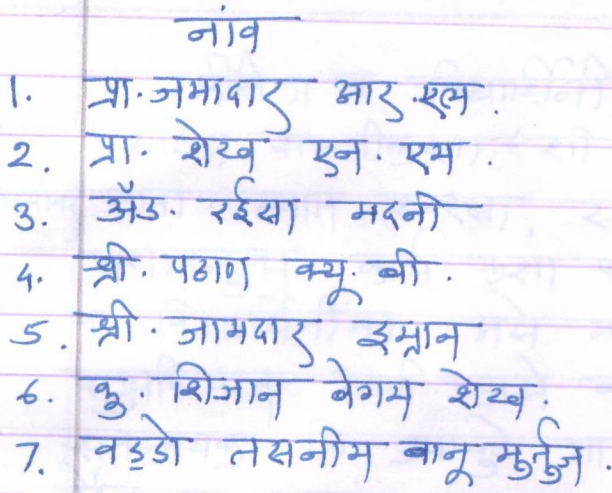 नांव
1. प्रा. जमादार आर. एल.
2. प्रा. शेख एन. एम.
3. ॲड. रईसा मदनी
4. श्री. पठाण क्यू. बी.
5. श्री. जामदार इम्रान
6. कु. शिजान बेगम शेख.
7. वड्डो तसनीम बानू मुर्तुज.